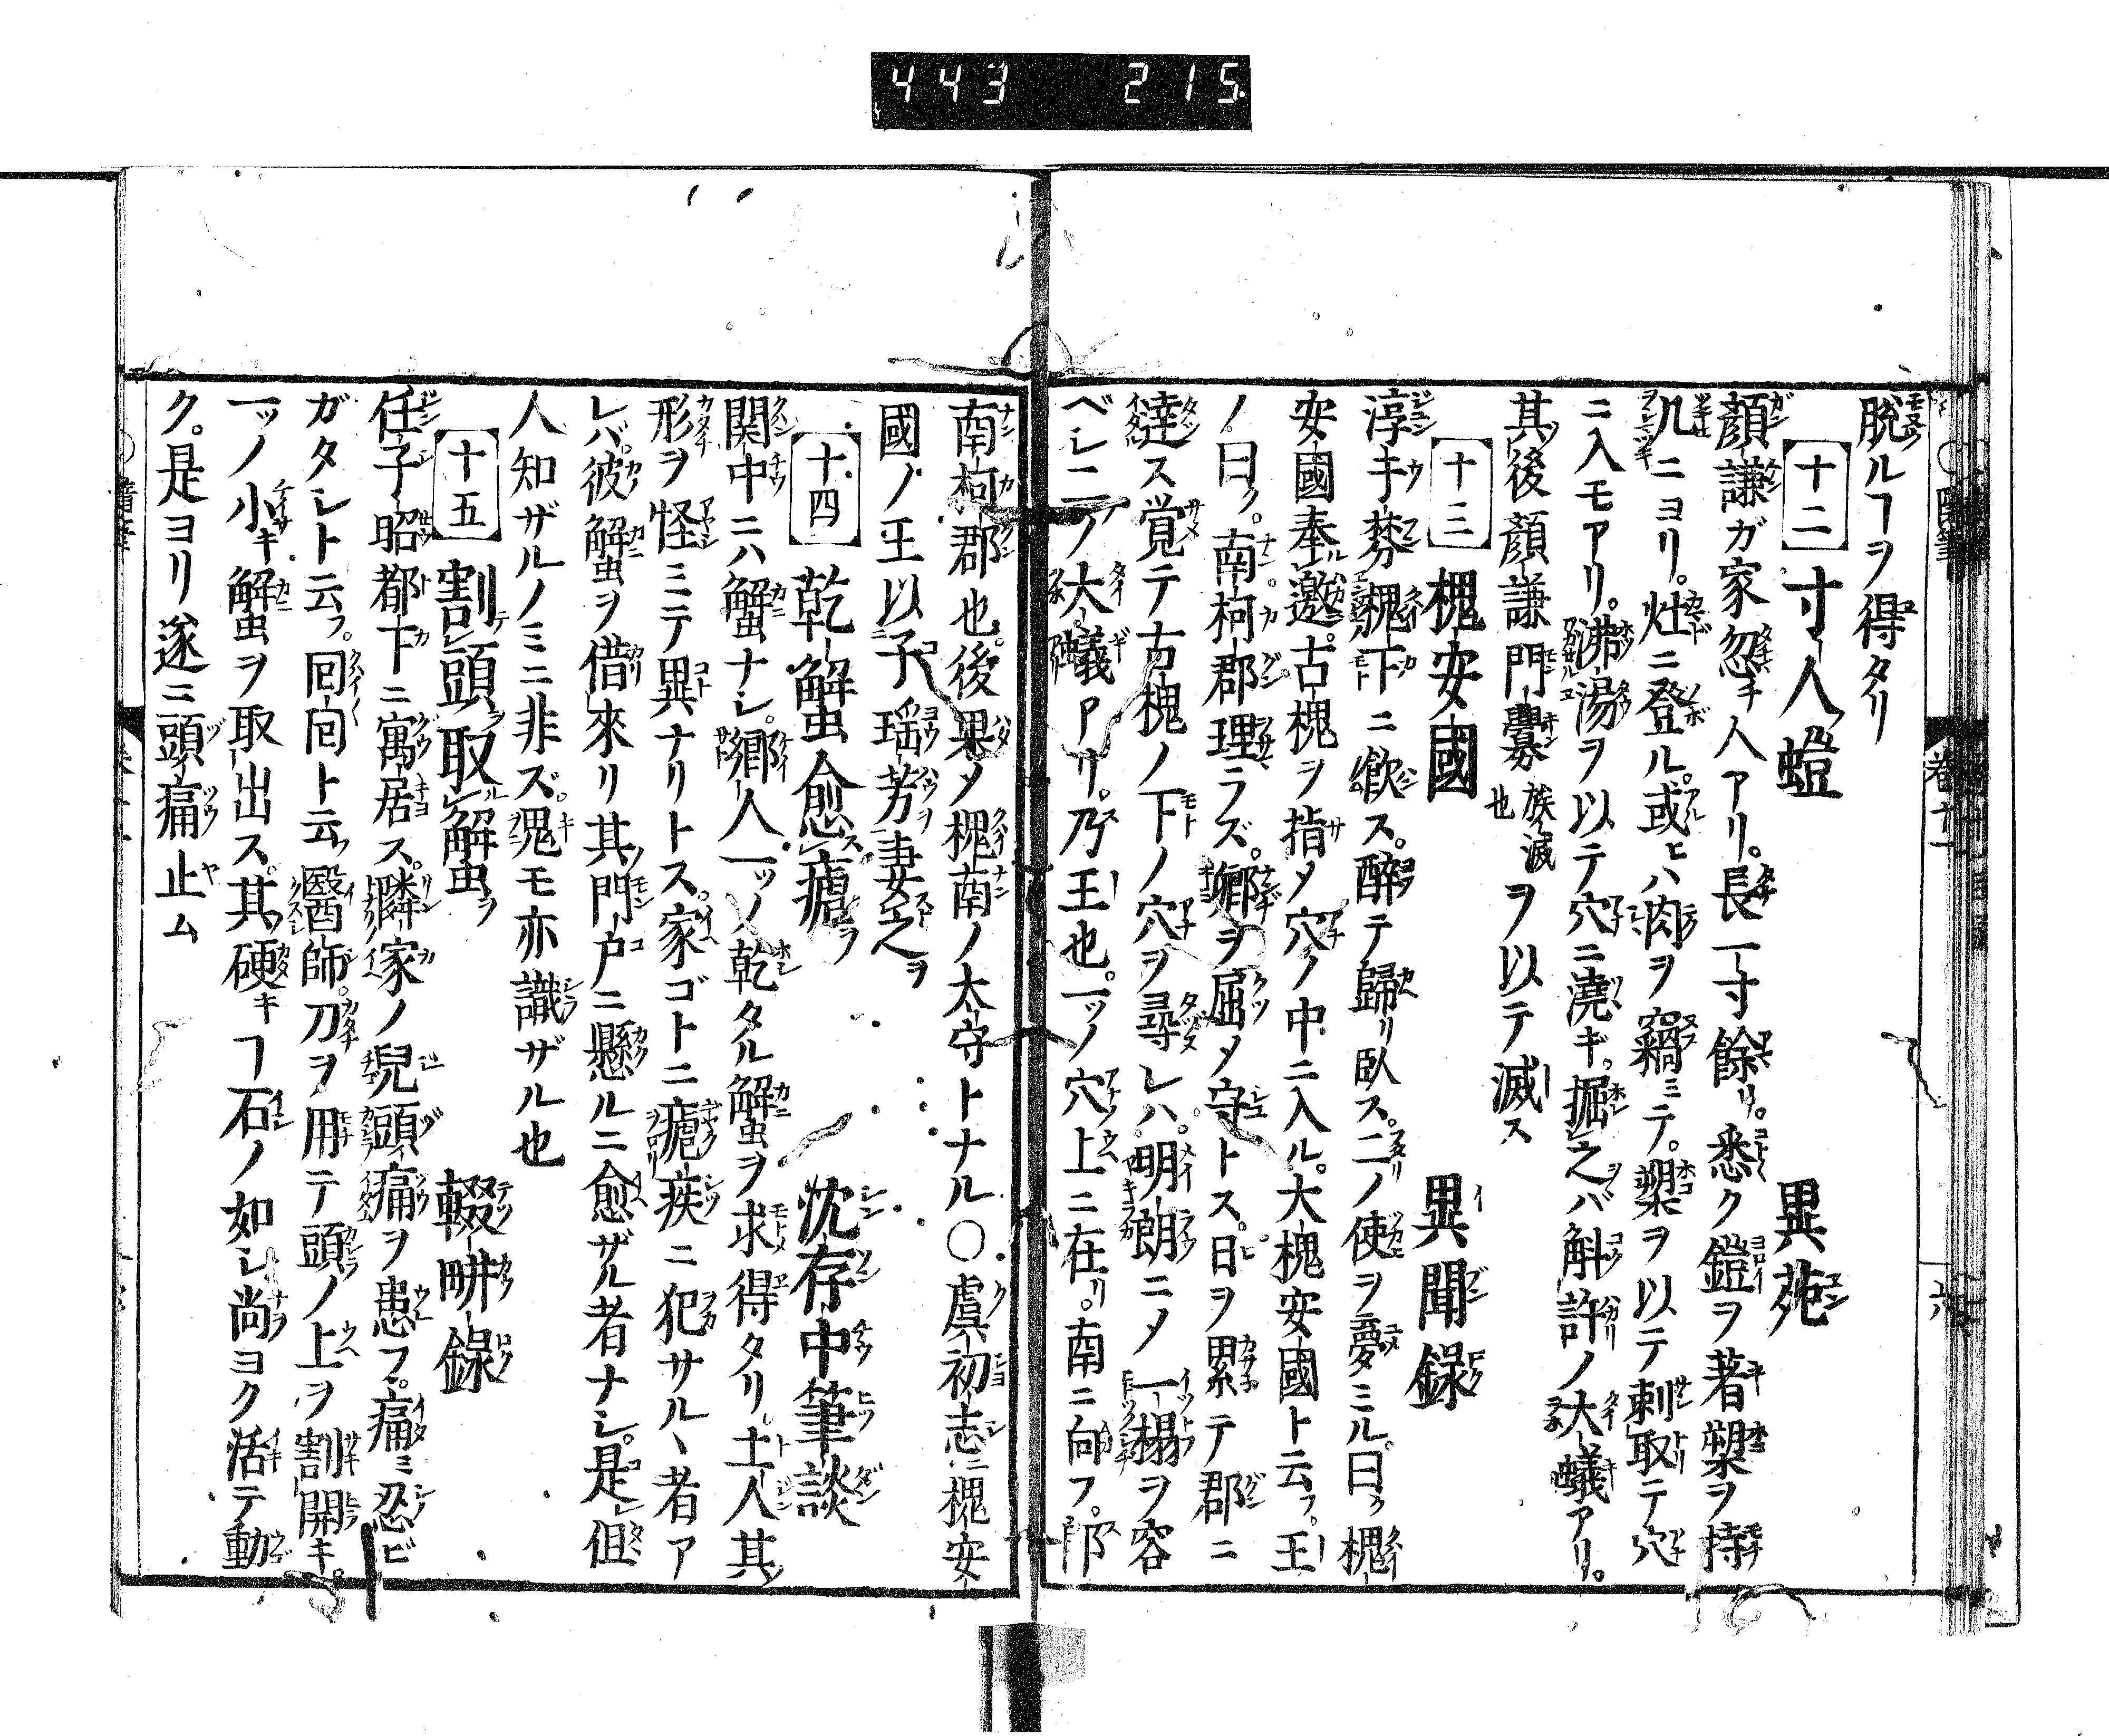 443 215
脱ルヿヲ得タリ
十二 寸人蟻 異苑
顔謙ガ家忽チ人アリ。長一寸餘リ。悉ク鎧ヲ著槊ヲ持
几ニヨリ。灶ニ登ル。或ヒハ肉ヲ竊ミテ。槊ヲ以テ刺取テ穴
ニ入モアリ。沸湯ヲ以テ穴ニ澆ギ。掘之バ斛許ノ大蟻アリ。
其後顔謙門釁族滅也ヲ以テ滅ス
十三 槐安國 異聞録
淳于棼槐下ニ飲ス。醉テ歸リ臥ス。二ノ使ヲ夢ミル。曰ク槐
安國奉邀。古槐ヲ指〆穴ノ中ニ入ル。大槐安國ト云フ。王
ノ曰ク。南柯郡理ラズ。卿ヲ屈〆守トス。日ヲ累テ郡ニ
達ス覚テ古槐ノ下ノ穴ヲ尋レハ。明朗ニ〆一榻ヲ容
ベシ二ノ大蟻アリ。乃王也。一ツノ穴上ニ在リ。南ニ向フ。即
南柯郡也。後果〆槐南ノ太守トナル〇虞初志ニ槐安
國ノ王以子瑶芳妻之ヲ
十四 乾蟹愈瘧 沈存中筆談
関中ニハ蟹ナシ。郷人一ツノ乾タル蟹ヲ求得タリ。土人其
形ヲ怪ミテ異ナリトス。家ゴトニ瘧疾ニ犯サルヽ者ア
レバ。彼蟹ヲ借來リ其門戸ニ懸ルニ愈ザル者ナシ。是レ但
人知ザルノミニ非ズ鬼モ亦識ザル也
十五 割頭取蟹 輟畊録
任子昭都下ニ寓居ス。隣家ノ兒頭痛ヲ患フ。痛ミ忍ビ
ガタシト云フ。回回ト云醫師。刀ヲ用テ頭ノ上ヲ割開キ。
一ツノ小キ蟹ヲ取出ス。其硬キヿ石ノ如シ尚ヨク活テ動
ク。是ヨリ遂ニ頭痛止ム